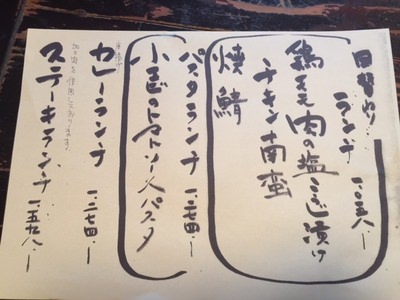 日替り
ランチ 一、〇五八.ー
鶏もも肉の塩こうじ漬け
チキン南蛮
焼鯖
パスタランチ 一、二七四.ー
小エビのトマトソースパスタ
カレーランチ 一、二七四.ー
ステーキランチ 一、五九八.ー